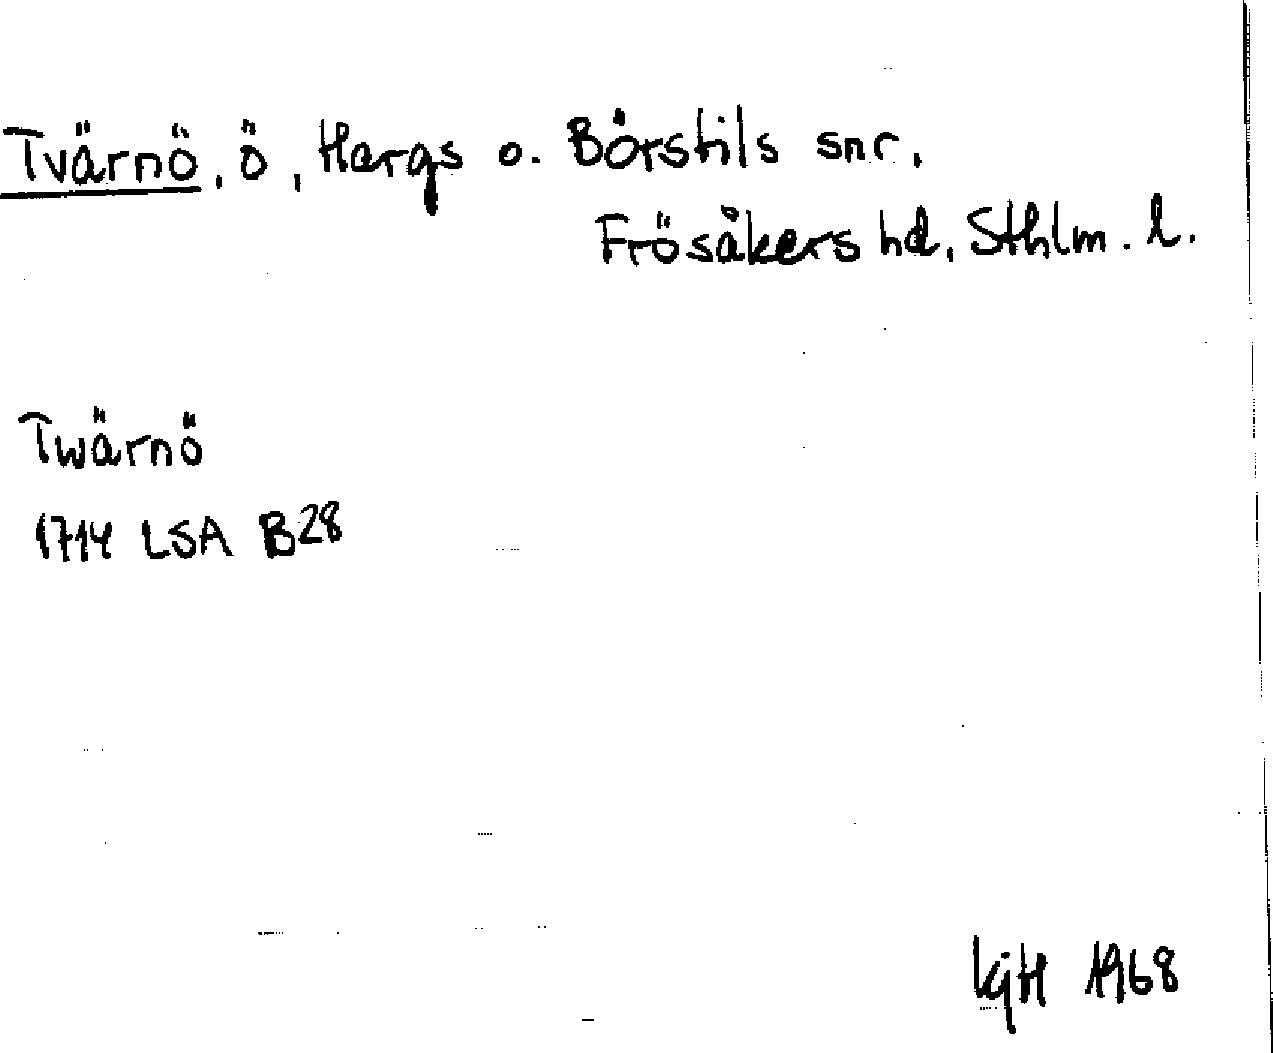 Tvärnö, ö, Hargs o. Börstils snr,
Frösåkers hd, Sthlm. l.
Twärnö
1714 LSA B28
KjH 1968